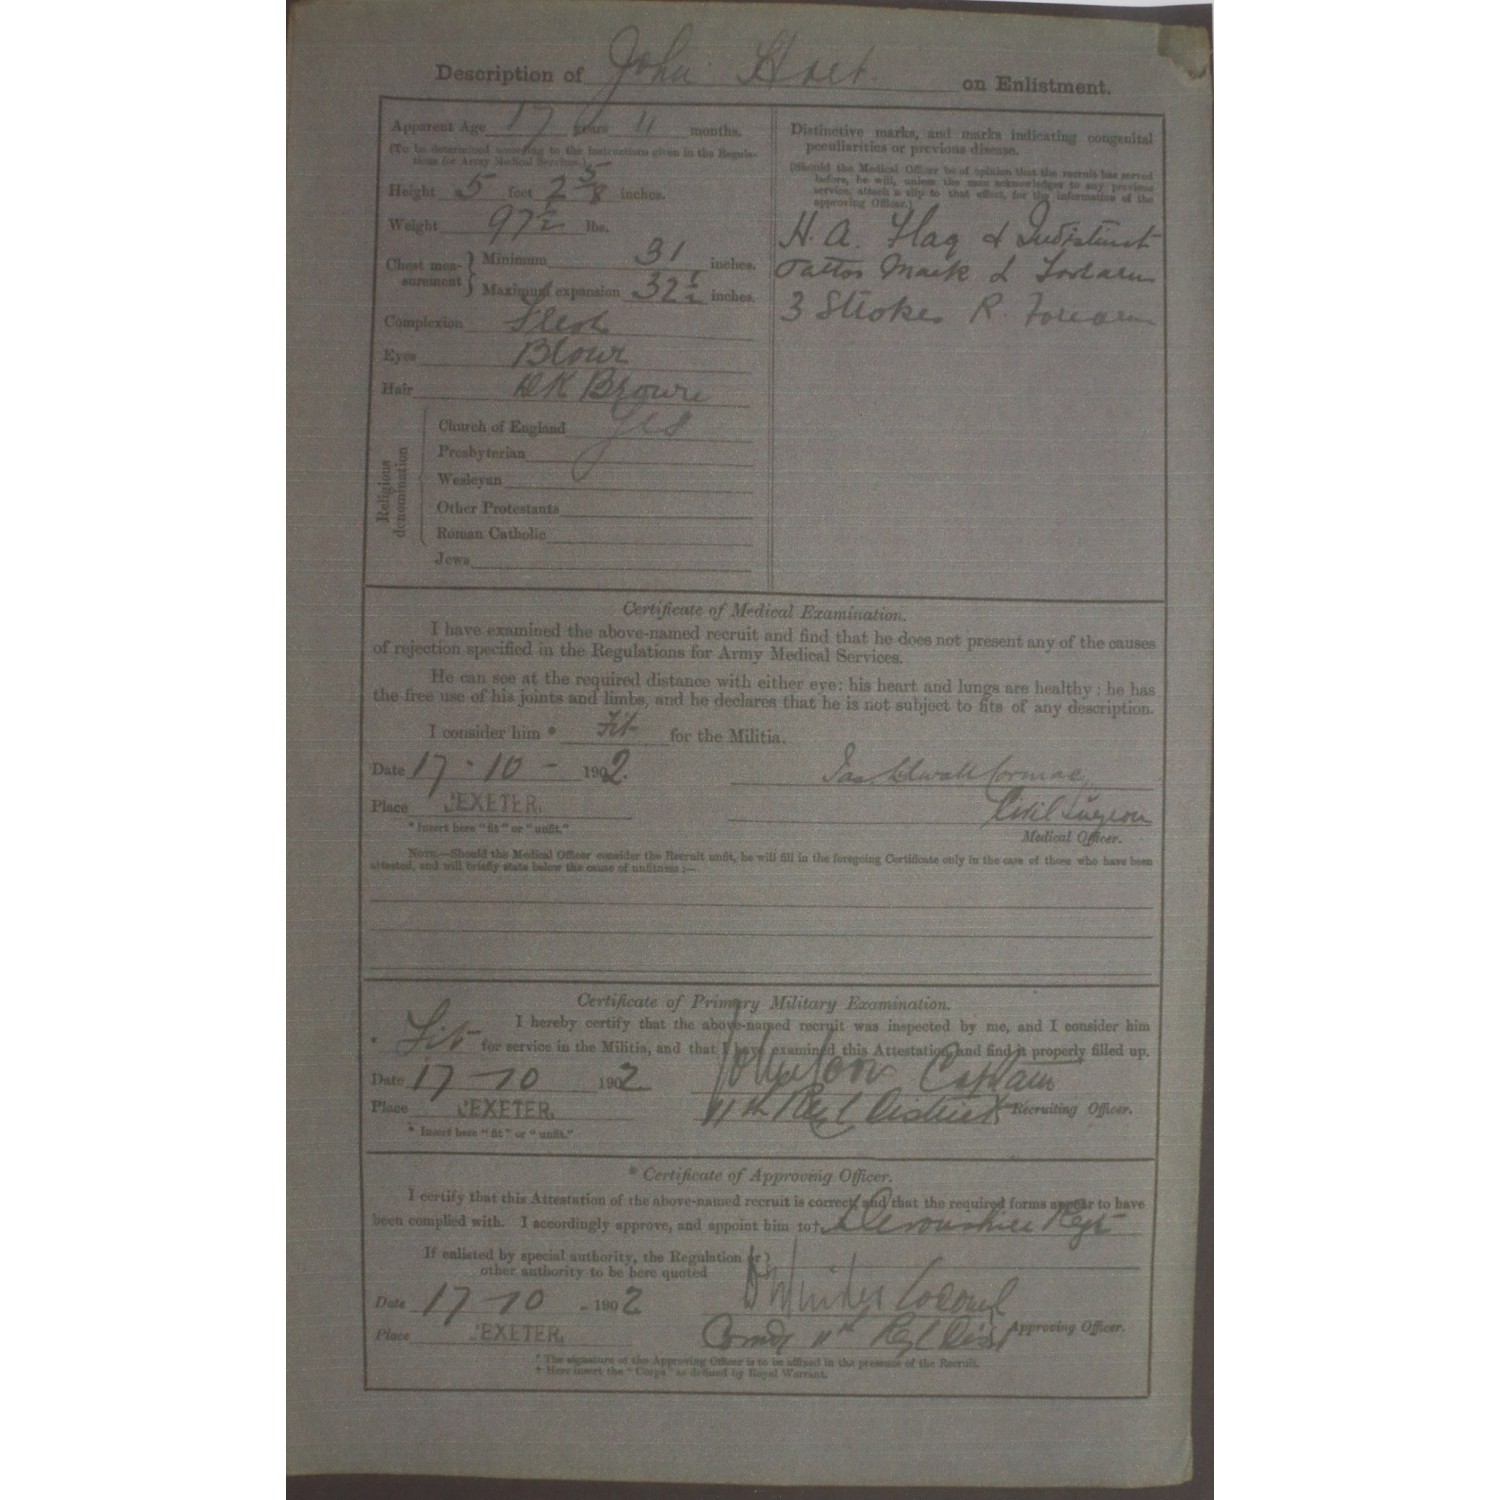 Description of John on Enlistment.
Apparent Age 17 years 11 months.
(To be determined according to the instructions given in the Regula-
tions for Army Medical Services.)
Height 5 feet 2 5/8 inches.
Weight 97 1/2 lbs.
Chest mea-
surement } Minimum 31 inches.
Maximum expansion 32 1/2 inches.
Complexion Fresh
Eyes
Hair DK Brown
Religious
denomination
Church of England Yes
Presbyterian
Wesleyan
Other Protestants
Roman Catholic
Jews
Distinctive marks, and marks indicating congenital
peculiarities or previous disease.
(Should the Medical Officer be of opinion that the recruit has served
before, he will, unless the man acknowledges to any previous
service, attach a slip to that effect, for the information of the
approving Officer.)
H. A. Flag & Indistinct
Tattoo Mark L Forearm
3 Strokes R. Forearm
Certificate of Medical Examination.
I have examined the above-named recruit and find that he does not present any of the causes
of rejection specified in the Regulations for Army Medical Services.
He can see at the required distance with either eye: his heart and lungs are healthy: he has
the free use of his joints and limbs, and he declares that he is not subject to fits of any description.
I consider him * Fit for the Militia.
Date 17 - 10 - 1902.
Place EXETER.
Civil Surgeon
Medical Officer.
* Insert here "fit" or "unfit."
NOTE.—Should the Medical Officer consider the Recruit unfit, he will fill in the foregoing Certificate only in the case of those who have been
attested, and will briefly state below the cause of unfitness:—
Certificate of Primary Military Examination.
I hereby certify that the above-named recruit was inspected by me, and I consider him
* Fit for service in the Militia, and that I have examined this Attestation, and find it properly filled up.
Date 17 - 10 1902 Captain
Place EXETER. 11th Regl District Recruiting Officer.
* Insert here "fit" or "unfit."
* Certificate of Approving Officer.
I certify that this Attestation of the above-named recruit is correct, and that the required forms appear to have
been complied with. I accordingly approve, and appoint him to† Devonshire Regt
If enlisted by special authority, the Regulation (or)
other authority to be here quoted
Date 17 - 10 - 1902 Colonel
Place EXETER. Comdg 11th Regl Dist Approving Officer.
* The signature of the Approving Officer is to be affixed in the presence of the Recruit.
† Here insert the "Corps" as defined by Royal Warrant.